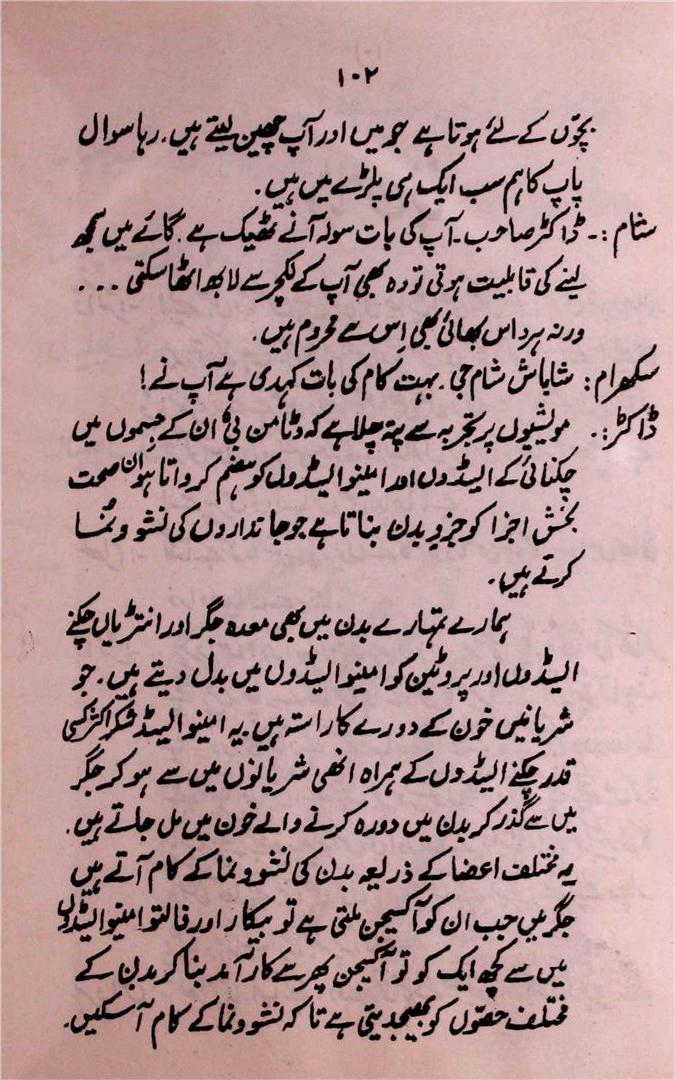 ۱۰۲
بچوّں کے لئے ہوتا ہے جو میں اور آپ چھین لیتے ہیں۔ رہا سوال
پاپ کا ہم سب ایک ہی پلڑے میں ہیں۔
شام :۔ ڈاکٹر صاحب۔ آپ کی بات سولہ آنے ٹھیک ہے۔ گائے میں سمجھ
لینے کی قابلیت ہوتی تو وہ بھی آپ کے لکچر سے لابھ اٹھا سکتی ...
ورنہ ہر داس بھائی بھی اِس سے محروم ہیں۔
سکھرام : شاباش شام جی۔ بہت کام کی بات کہدی ہے آپ نے!
ڈاکٹر :۔ مویشیوں پر تجربہ سے پتہ چلا ہے کہ وٹامن بی' ان کے جسموں میں
چکنائی کے ایسڈوں اور امینو ایسڈوں کو ہضم کرواتا ہوا ان صحت
بخش اجزا کو جزوِ بدن بناتا ہے جو جانداروں کی نشو و نُما
کرتے ہیں۔
ہمارے تمہارے بدن میں بھی معدہ جگر اور انتڑیاں چکنے
ایسڈوں اور پروٹین کو امینو ایسڈوں میں بدل دیتے ہیں۔ جو
شریانیں خون کے دورے کا راستہ ہیں۔ یہ امینو ایسڈ شکر اکثر کسی
قدر چکنے ایسڈوں کے ہمراہ انھی شریانوں میں سے ہو کر جگر
میں سے گذر کر بدن میں دورہ کرنے والے خون میں مل جاتے ہیں۔
یہ مختلف اعضا کے ذریعہ بدن کی نشو و نما کے کام آتے ہیں
جگر میں جب ان کو آکسیجن ملتی ہے تو بیکار اور فالتو امینو ایسڈوں
میں سے کچھ ایک کو تو آکسیجن پھر سے کارآمد بنا کر بدن کے
مختلف حصّوں کو بھیجدیتی ہے تاکہ نشو و نما کے کام آ سکیں۔